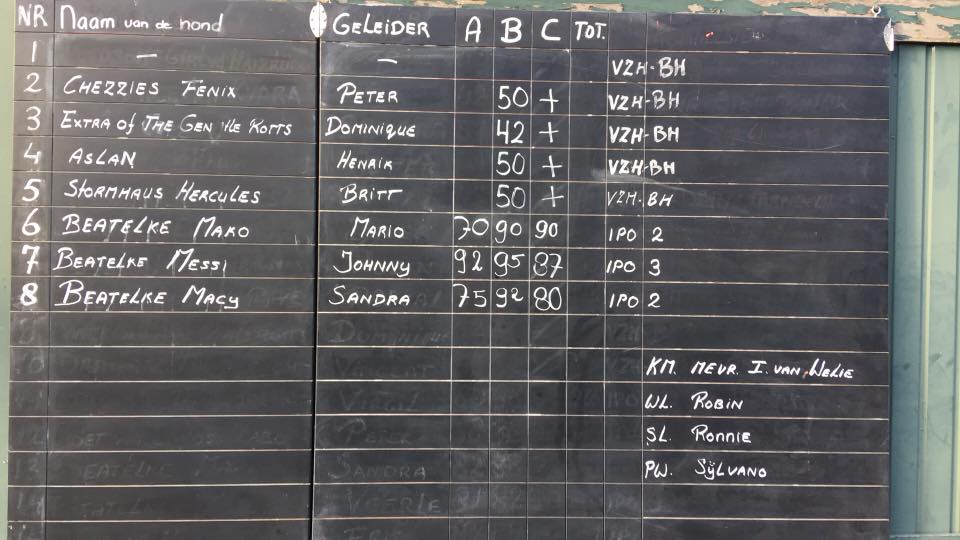 NR Naam van de hond GELEIDER A B C TOT.
1 — — VZH-BH
2 CHEZZIES FENIX PETER 50 + VZH-BH
3 EXTRA OF THE GEN DOMINIQUE 42 + VZH-BH
4 ASLAN HENRIK 50 + VZH-BH
5 STORMHAUS HERCULES BRITT 50 + VZH-BH
6 BEATELKE MAKO MARIO 70 90 90 IPO 2
7 BEATELKE MESSI JOHNNY 92 95 87 IPO 3
8 BEATELKE MACY SANDRA 75 92 80 IPO 2
KM. MEVR. I. VAN WELIE
WL. ROBIN
SL. RONNIE
PW. SYLVANO
SANDRA